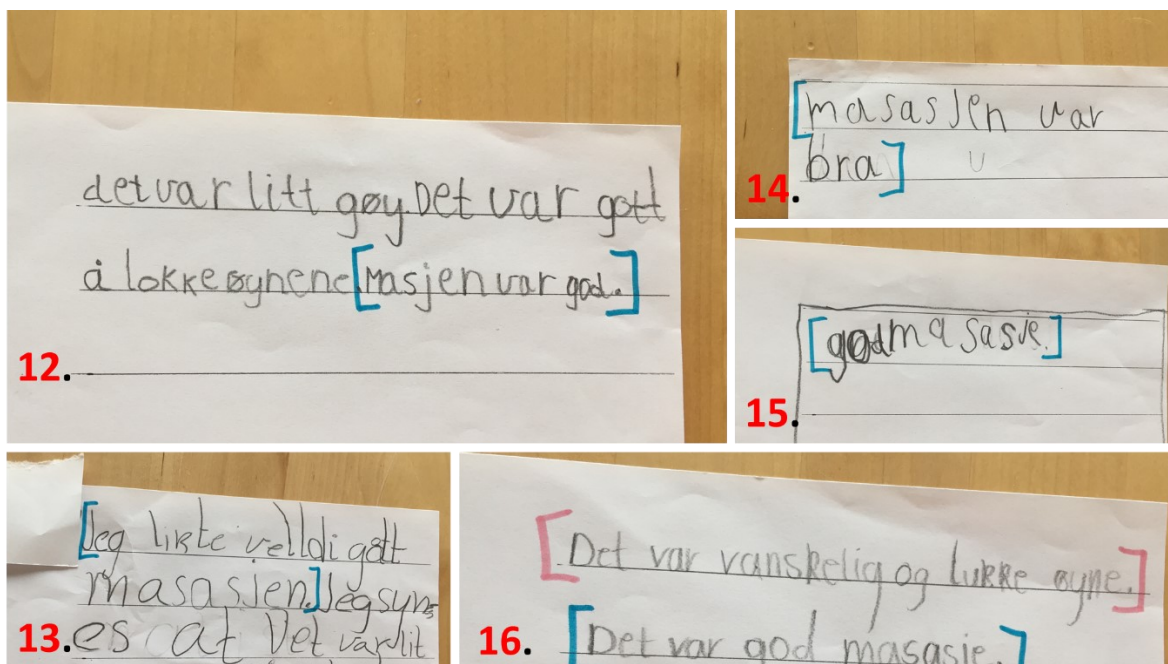 detvar litt gøy. Det var gott
å lokke øynene. [Masjen var god.]
12.
[masasjen var
bra]
14.
[godmasasje.]
15.
[Jeg likte velldi gott
masasjen.] Jeg syns
13. es at det var lit
[Det var vanskelig og lukke øyne.]
16. [Det var god masasje.]